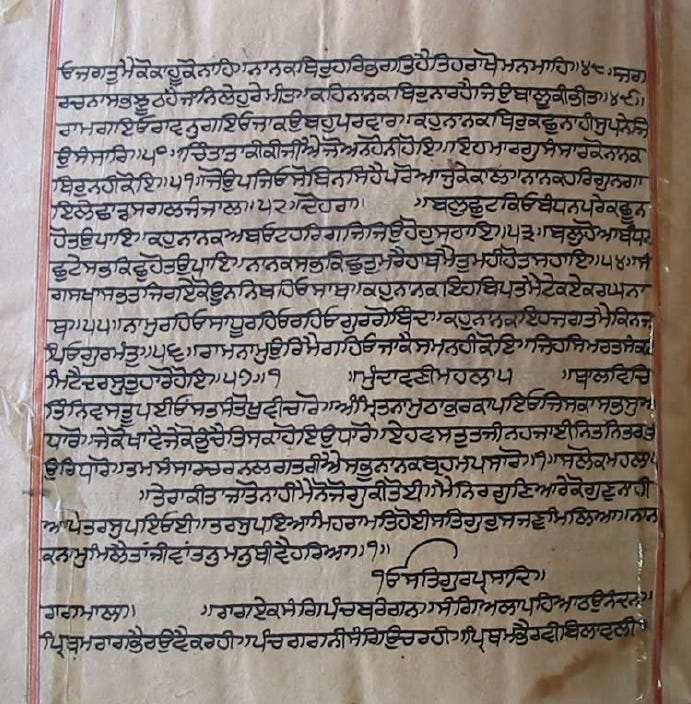 ਓਜਗਤੁਮੈਕੋਕਾਹੂਕੋਨਾਹਿ॥ਨਾਨਕਥਿਰੁਹਰਿਭਗਤਿਹੈਤਿਹਰਾਖੋਮਨਮਾਹਿ॥੪੮॥ਜਗ
ਰਚਨਾਸਭਝੂਠਹੈਜਾਨਿਲੇਹੁਰੇਮੀਤਾ॥ਕਹਿਨਾਨਕਥਿਰੁਨਾਰਹੈਜਿਉਬਾਲੂਕੀਭੀਤਿ॥੪੯॥
ਰਾਮਗਇਓਰਾਵਨੁਗਇਓਜਾਕਉਬਹੁਪਰਵਾਰਾ॥ਕਹੁਨਾਨਕਥਿਰੁਕਛੁਨਾਹੀਸੁਪਨੇਜਿ
ਉਸੰਸਾਰਿ॥੫੦॥ਚਿੰਤਾਤਾਕੀਕੀਜੀਐਜੋਅਨਹੋਨੀਹੋਇ॥ਇਹਮਾਰਗੁਸੰਸਾਰਕੋਨਾਨਕ
ਥਿਰੁਨਹੀਕੋਇ॥੫੧॥ਜੋਉਪਜਿਓਸੋਬਿਨਸਿਹੈਪਰੋਆਜੁਕੇਕਾਲਿ॥ਨਾਨਕਹਰਿਗੁਨਗਾ
ਇਲੇਛਾਡਸਗਲਜੰਜਾਲ॥੫੨॥ਦੋਹਰਾ॥ ॥ਬਲੁਛੁਟਕਿਓਬੰਧਨਪਰੇਕਛੂਨ
ਹੋਤਉਪਾਇ॥ਕਹੁਨਾਨਕਅਬਓਟਹਰਿਗਜਿਜਿਉਹੋਹੁਸਹਾਇ॥੫੩॥ਬਲੁਹੋਆਬੰਧਨ
ਛੁਟੇਸਭਕਿਛੁਹੋਤਉਪਾਇ॥ਨਾਨਕਸਭਕਿਛੁਤੁਮਰੈਹਾਥਮੈਤੁਮਹੀਹੋਤਸਹਾਇ॥੫੪॥ਸੰ
ਗਸਖਾਸਭਤਜਿਗਏਕੋਊਨਨਿਬਹਿਓਸਾਥਾ॥ਕਹੁਨਾਨਕਇਹਬਿਪਤਮੈਟੇਕਏਕਰਘੁਨਾ
ਥਾ॥੫੫॥ਨਾਮੁਰਹਿਓਸਾਧੂਰਹਿਓਰਹਿਓਗੁਰਗੋਬਿੰਦਾ॥ਕਹੁਨਾਨਕਇਹਜਗਤਮੈਕਿਨਜ
ਪਿਓਗੁਰਮੰਤੁ॥੫੬॥ਰਾਮਨਾਮੁਉਰਿਮੈਗਹਿਓਜਾਕੈਸਮਨਹੀਕੋਇ॥ਜਿਹਸਿਮਰਤਸੰਕਟ
ਮਿਟੈਦਰਸੁਤੁਹਾਰੋਹੋਇ॥੫੭॥੧ ॥ਮੁੰਦਾਵਣੀਮਹਲਾ੫ ॥ਥਾਲਵਿਚਿ
ਤਿੰਨਿਵਸਤੂਪਈਓਸਤਸੰਤੋਖੁਵੀਚਾਰੋ॥ਅੰਮ੍ਰਿਤਨਾਮੁਠਾਕੁਰਕਾਪਇਓਜਿਸਕਾਸਭਸੁਅ
ਧਾਰੋ॥ਜੇਕੋਖਾਵੈਜੇਕੋਭੁੰਚੈਤਿਸਕਾਹੋਇਉਧਾਰੋ॥ਏਹਵਸਤੁਤਜੀਨਹਜਾਈਨਿਤਨਿਤਰਖੁ
ਉਰਿਧਾਰੋ॥ਤਮਸੰਸਾਰਚਰਨਲਗਤਰੀਐਸਭੁਨਾਨਕਬ੍ਰਹਮਪਸਾਰੋ॥੧॥ਸਲੋਕਮਹਲਾ੫
॥ਤੇਰਾਕੀਤਾਜਾਤੋਨਾਹੀਮੈਨੋਜੋਗੁਕੀਤੋਈ॥ਮੈਨਿਰਗੁਣਿਆਰੇਕੋਗੁਣੁਨਾਹੀ
ਆਪੇਤਰਸੁਪਇਓਈ॥ਤਰਸੁਪਇਆਮਿਹਰਾਮਤਿਹੋਈਸਤਿਗੁਰੁਸਜਣੁਮਿਲਿਆ॥ਨਾਨ
ਕਨਾਮੁਮਿਲੈਤਾਂਜੀਵਾਂਤਨੁਮਨੁਥੀਵੈਹਰਿਆ॥੧॥
ੴਸਤਿਗੁਰਪ੍ਰਸਾਦਿ॥
ਰਾਗਮਾਲਾ॥ ॥ਰਾਗਏਕਸੰਗਿਪੰਚਬਰੰਗਨ॥ਸੰਗਿਅਲਾਪਹਿਆਠਉਨੰਦਨ॥
ਪ੍ਰਿਥਮਰਾਗਭੈਰਉਵੈਕਰਹੀ॥ਪੰਚਰਾਗਨੀਸੰਗਿਉਚਰਹੀ॥ਪ੍ਰਿਥਮਭੈਰਵੀਬਿਲਾਵਲੀ